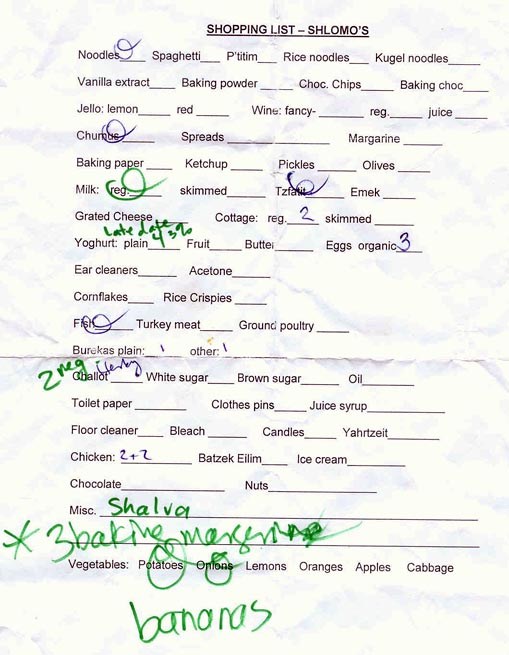 SHOPPING LIST – SHLOMO'S
Noodles____ Spaghetti___ P'titim___ Rice noodles____ Kugel noodles_____
Vanilla extract____ Baking powder ____ Choc. Chips_____ Baking choc____
Jello: lemon____ red ____ Wine: fancy- _____ reg.____ juice _____
Chumus____ Spreads ____________ Margarine _____
Baking paper ____ Ketchup _____ Pickles _____ Olives _____
Milk: reg.____ skimmed______ Tzfatit____ Emek _____
Grated Cheese______ Cottage: reg. 2 skimmed _____
late date
Yoghurt: plain 4 3% Fruit_____ Butter_____ Eggs organic 3
Ear cleaners_____ Acetone_____
Cornflakes____ Rice Crispies _____
Fish______ Turkey meat_____ Ground poultry _____
Burekas plain: 1 other: 1
2 reg
Challot_____ White sugar____ Brown sugar_____ Oil________
Toilet paper ________ Clothes pins_____ Juice syrup____________
Floor cleaner____ Bleach _____ Candles_____ Yahrtzeit_____
Chicken: 2+2 Batzek Eilim____ Ice cream________
Chocolate________________ Nuts________________
Misc. Shalva
* 3 baking margerine
Vegetables: Potatoes Onions Lemons Oranges Apples Cabbage
bananas